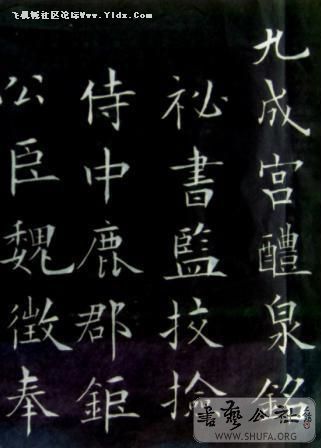 社区论坛Www.Yldx.com
九成宫醴泉銘
祕書監挍撿
侍中鹿郡鉅
公臣魏徵奉
書藝公社
WWW.SHUFA.ORG